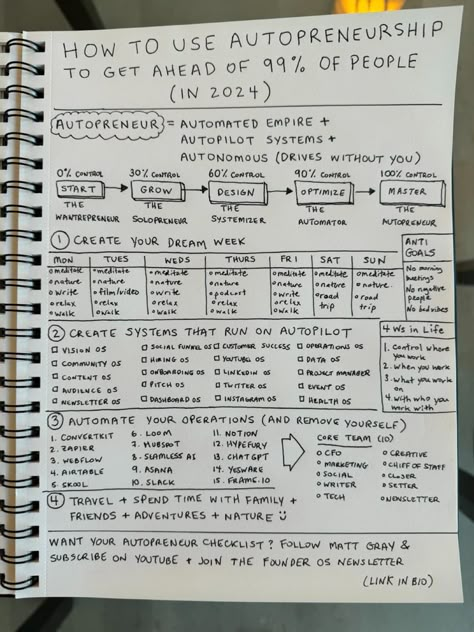 HOW TO USE AUTOPRENEURSHIP
TO GET AHEAD OF 99% OF PEOPLE
(IN 2024)
AUTOPRENEUR = AUTOMATED EMPIRE +
AUTOPILOT SYSTEMS +
AUTONOMOUS (DRIVES WITHOUT YOU)
0% CONTROL 30% CONTROL 60% CONTROL 90% CONTROL 100% CONTROL
START GROW DESIGN OPTIMIZE MASTER
THE THE THE THE THE
WANTREPRENEUR SOLOPRENEUR SYSTEMIZER AUTOMATOR AUTOPRENEUR
1 CREATE YOUR DREAM WEEK
ANTI
GOALS
MON TUES WEDS THURS FRI SAT SUN
meditate meditate meditate meditate meditate meditate meditate
nature nature nature nature nature nature nature
write film/video write podcast write road road
relax relax relax relax relax trip trip
walk walk walk walk walk
No morning
meetings
No negative
people
No bad vibes
2 CREATE SYSTEMS THAT RUN ON AUTOPILOT
VISION OS SOCIAL FUNNEL OS CUSTOMER SUCCESS OPERATIONS OS
COMMUNITY OS HIRING OS YOUTUBE OS DATA OS
CONTENT OS ONBOARDING OS LINKEDIN OS PROJECT MANAGER
AUDIENCE OS PITCH OS TWITTER OS EVENT OS
NEWSLETTER OS DASHBOARD OS INSTAGRAM OS HEALTH OS
4 Ws in Life
1. Control where
you work
2. When you work
3. What you work
on
4. With who you
work with
3 AUTOMATE YOUR OPERATIONS (AND REMOVE YOURSELF)
1. CONVERTKIT 6. LOOM 11. NOTION
2. ZAPIER 7. HUBSPOT 12. HYPEFURY
3. WEBFLOW 8. SEAMLESS AI 13. CHATGPT
4. AIRTABLE 9. ASANA 14. YESWARE
5. SKOOL 10. SLACK 15. FRAME.IO
CORE TEAM (10)
CFO CREATIVE
MARKETING CHIEF OF STAFF
SOCIAL CLOSER
WRITER SETTER
TECH NEWSLETTER
4 TRAVEL + SPEND TIME WITH FAMILY +
FRIENDS + ADVENTURES + NATURE
WANT YOUR AUTOPRENEUR CHECKLIST? FOLLOW MATT GRAY &
SUBSCRIBE ON YOUTUBE + JOIN THE FOUNDER OS NEWSLETTER
(LINK IN BIO)